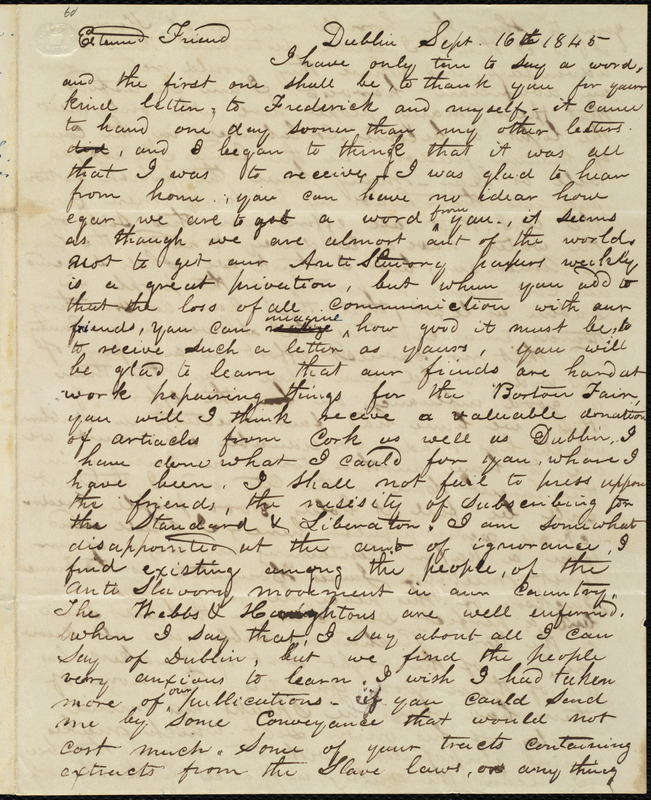 60
Esteemed Friend Dublin Sept. 16th 1845
I have only time to say a word,
and the first one shall be, to thank you for your
kind letter, to Frederick and myself,- it came
to hand one day sooner than my other letters.
did, and I began to think that it was all
that I was to receive,- I was glad to hear
from home., you can have no idear how
egar we are to get a word from you., it seems
as though we are almost aut of the world,
not to get our Anti Slavery papers weekly
is a great privation, but when you add to
that the loss of all communiction with our
friends, you can imagine how good it must be, to
to recive such a letter as yours, you will
be glad to learn that our friends are hard at
work prepairing things for the Boston Fair,
you will I think recive a valuable donation
of artiacls from Cork as well as Dublin, I
have done what I could for you, whare I
have been. I shall not fail to press uppon
the friends, the nesisity of subscribing for
the Standard & Liberator. I am somewhat
disappointed at the amt of ignorance, I
find existing among the people, of the
Anti Slavory movement in our Country,
The Webbs & Haughtons are well enformd.
when I say that, I say about all I can
say of Dublin, but we find the people
very anxious to learn. I wish I had taken
more of our publications. - if you could send
me by some Conveyance that would not
cost much. Some of your tracts containing
extracts from the Slave laws, or any thing